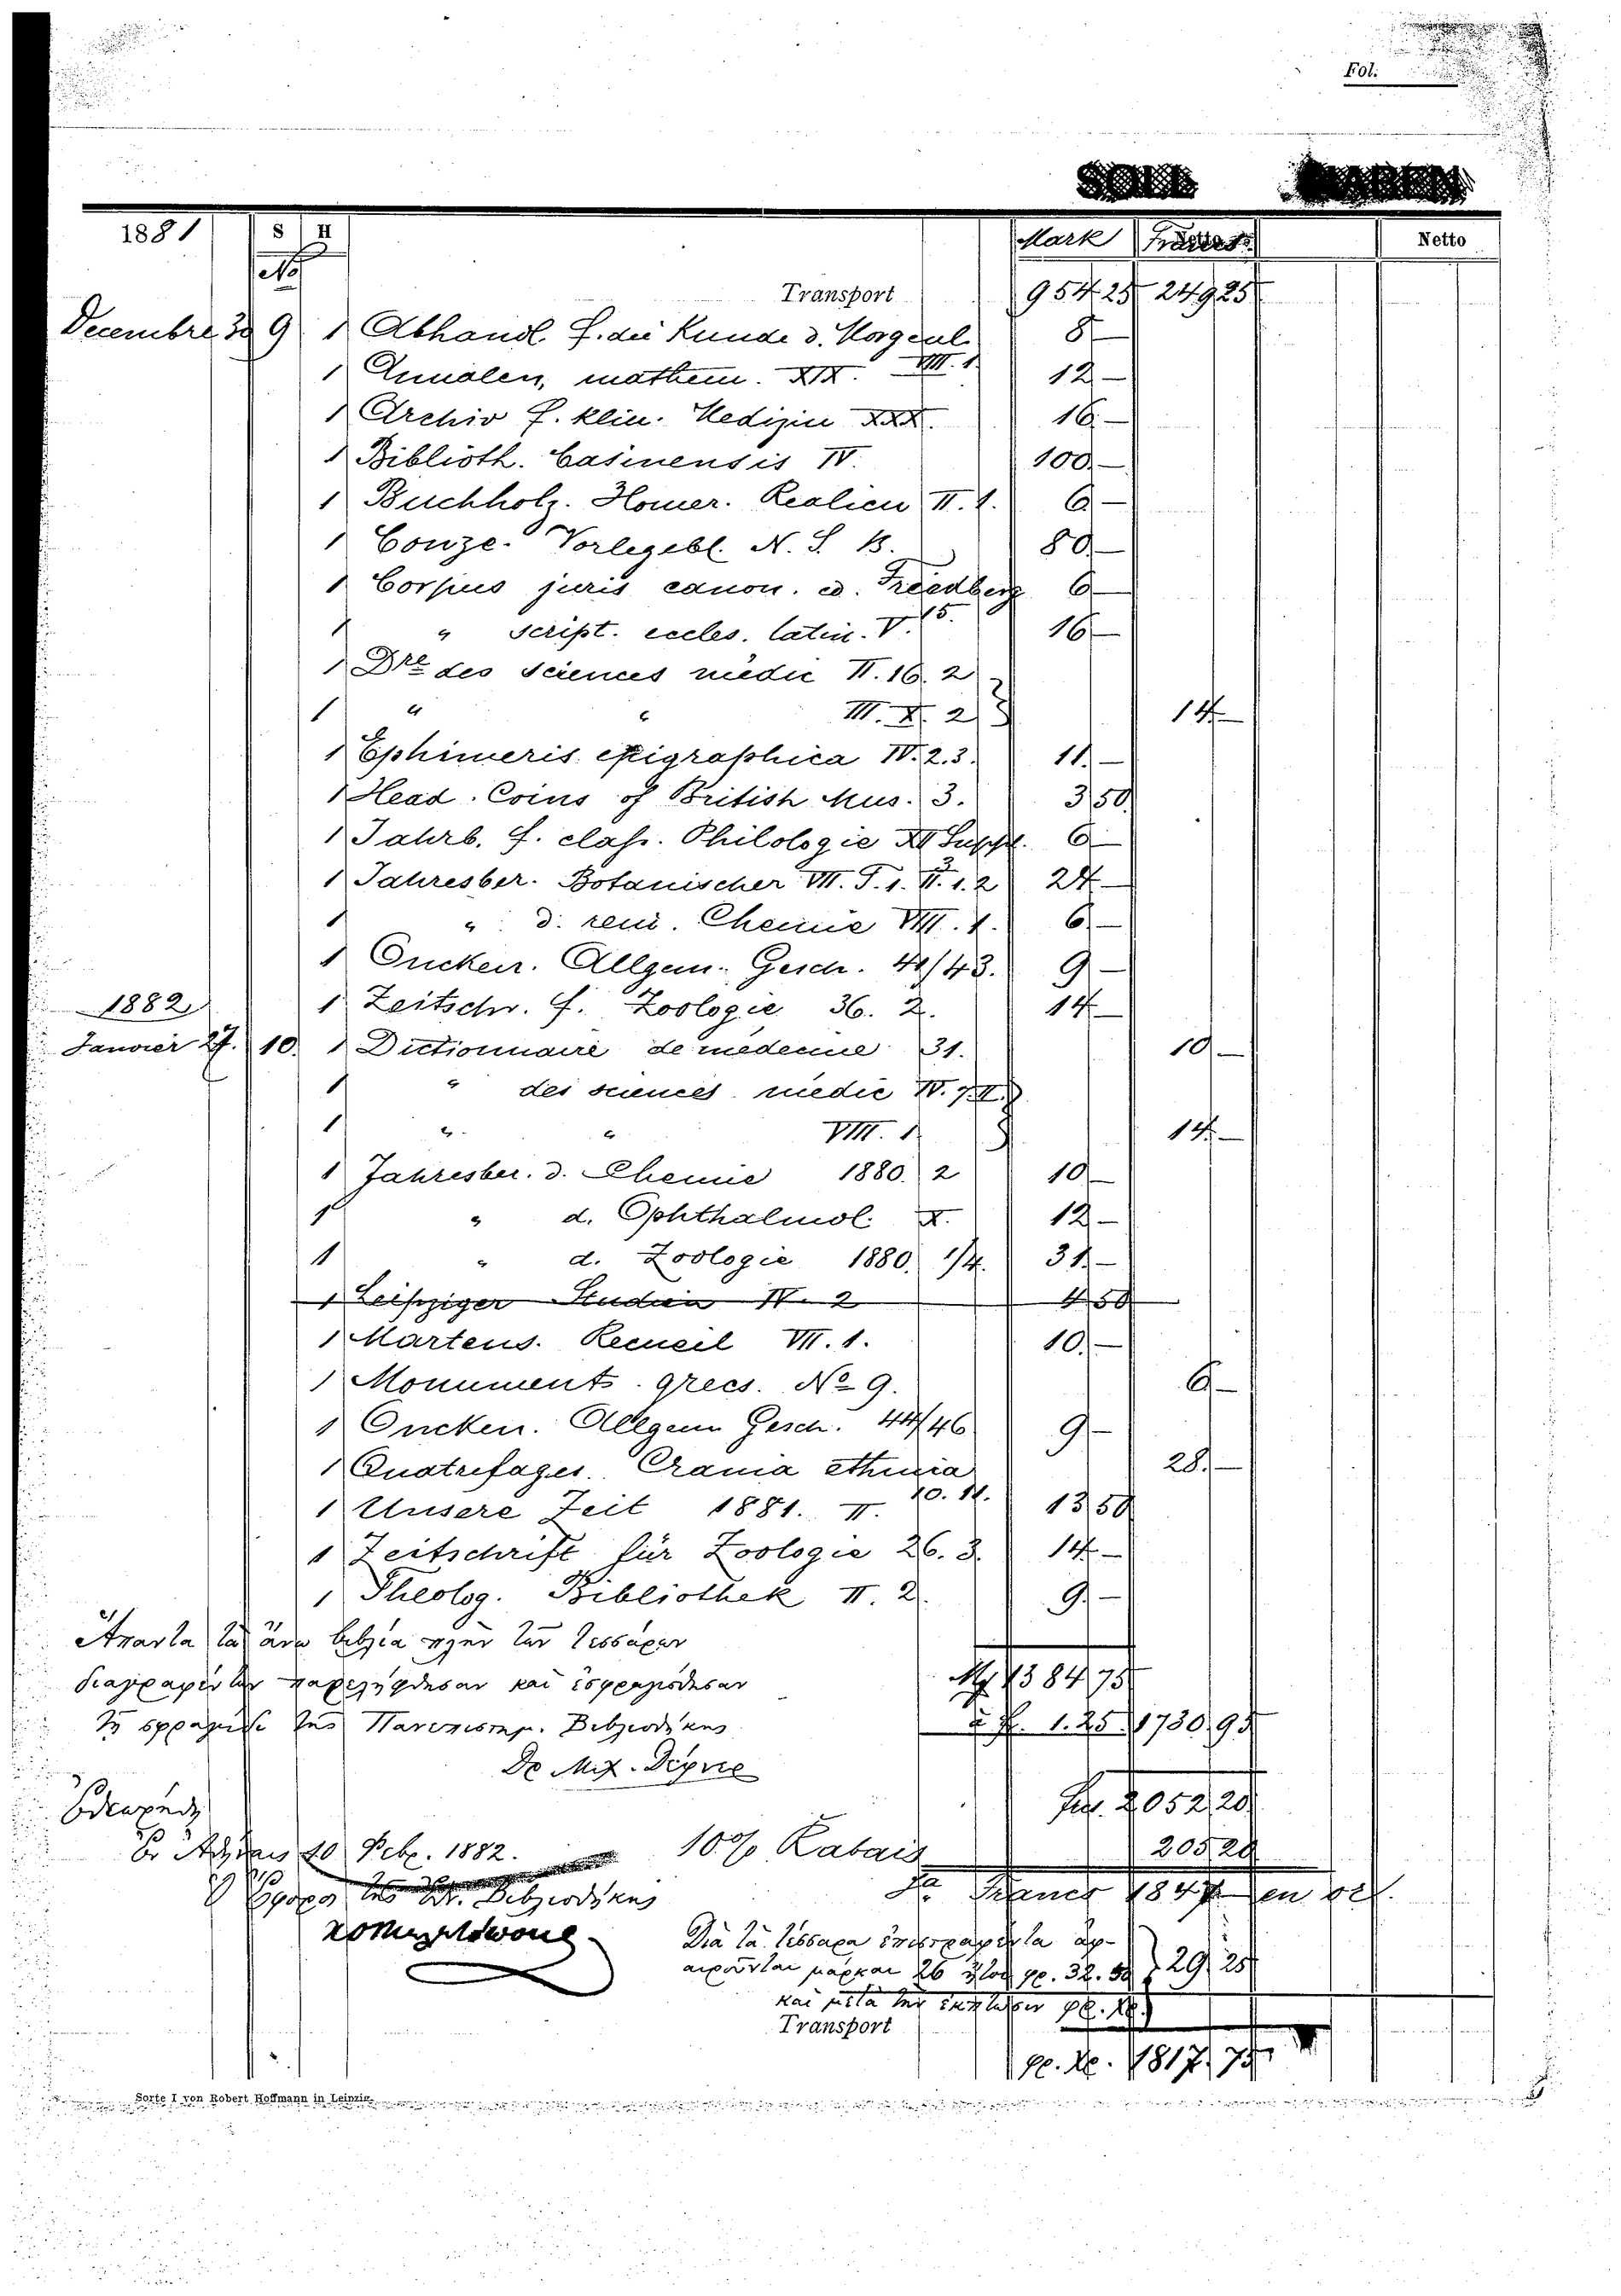 Fol:
SOLL HABEN
1881 S H Mark Francs Netto
No
Transport 954 25 249 25
Decembre 30 9 1 Abhandl. f. die Kunde d. Morgenl. VIII. 1. 8 —
1 Annalen, mathem. XIX. 12 —
1 Archiv f. klin. Medizin XXX. 16 —
1 Biblioth. Casinensis IV. 100 —
1 Buchholz. Homer. Realien II. 1. 6 —
1 Conze. Vorlegebl. N. S. B. 80 —
1 Corpus juris canon. ed. Friedberg 15. 6 —
1 " script. eccles. latin. V. 16 —
1 Dre des Sciences medic II. 16. 2
1 " " III. X. 2 14 —
1 Ephimeris epigraphica IV. 2. 3. 11 —
1 Head. Coins of British Mus. 3. 3 50
1 Jahrb. f. class. Philologie XII Suppl. 3 6 —
1 Jahresber. Botanischer VII. I. 1. II. 1. 2 24 —
1 " d. rein. Chemie VIII. 1. 6 —
1 Oncken. Allgem. Gesch. 41/43. 9 —
1882
1 Zeitschr. f. Zoologie 36. 2. 14 —
Janvier 27. 10. 1 Dictionnaire de medecine 31. 10 —
1 " des sciences medic IV. 7. II.
1 " " VIII. 1 14 —
1 Jahresber. d. Chemie 1880. 2 10 —
1 " d. Ophthalmol. X. 12 —
1 " d. Zoologie 1880. 1/4. 31 —
1 Leipziger Studien IV. 2 4 50
1 Martens. Recueil VII. 1. 10 —
1 Monuments grecs. No 9. 6 —
1 Oncken. Allgem Gesch. 44/46 9 —
1 Quatrefages. Crania ethnica 10. 28 —
1 Unsere Zeit 1881. II. 11. 13 50
1 Zeitschrift für Zoologie 26. 3. 14 —
1 Theolog. Bibliothek II. 2. 9 —
Ἅπαντα τὰ ἄνω βιβλία πλὴν τῶν τεσσάρων
διαγραφέντων παρελήφθησαν καὶ ἐσφραγίσθησαν M. 1384 75
τῇ σφραγίδι τῆς Πανεπιστημ. Βιβλιοθήκης à f. 1.25 1730 95
Δρ Μιχ. Δέφνερ
Fcs. 2052 20
Ἐν Ἀθήναις 10 Φεβρ. 1882. 10% Rabais 205 20
Ὁ Ἔφορος τῆς Ἐθ. Βιβλιοθήκης Francs 1847 en or.
Διὰ τὰ τέσσαρα διαγραφέντα ἀφ-
αιροῦνται μάρκαι 26 ἤτοι φρ. 32.50 29 25
καὶ μετὰ τὴν ἔκπτωσιν φρ. χρ.
Transport
φρ. χρ. 1817 75
Sorte I von Robert Hoffmann in Leipzig.